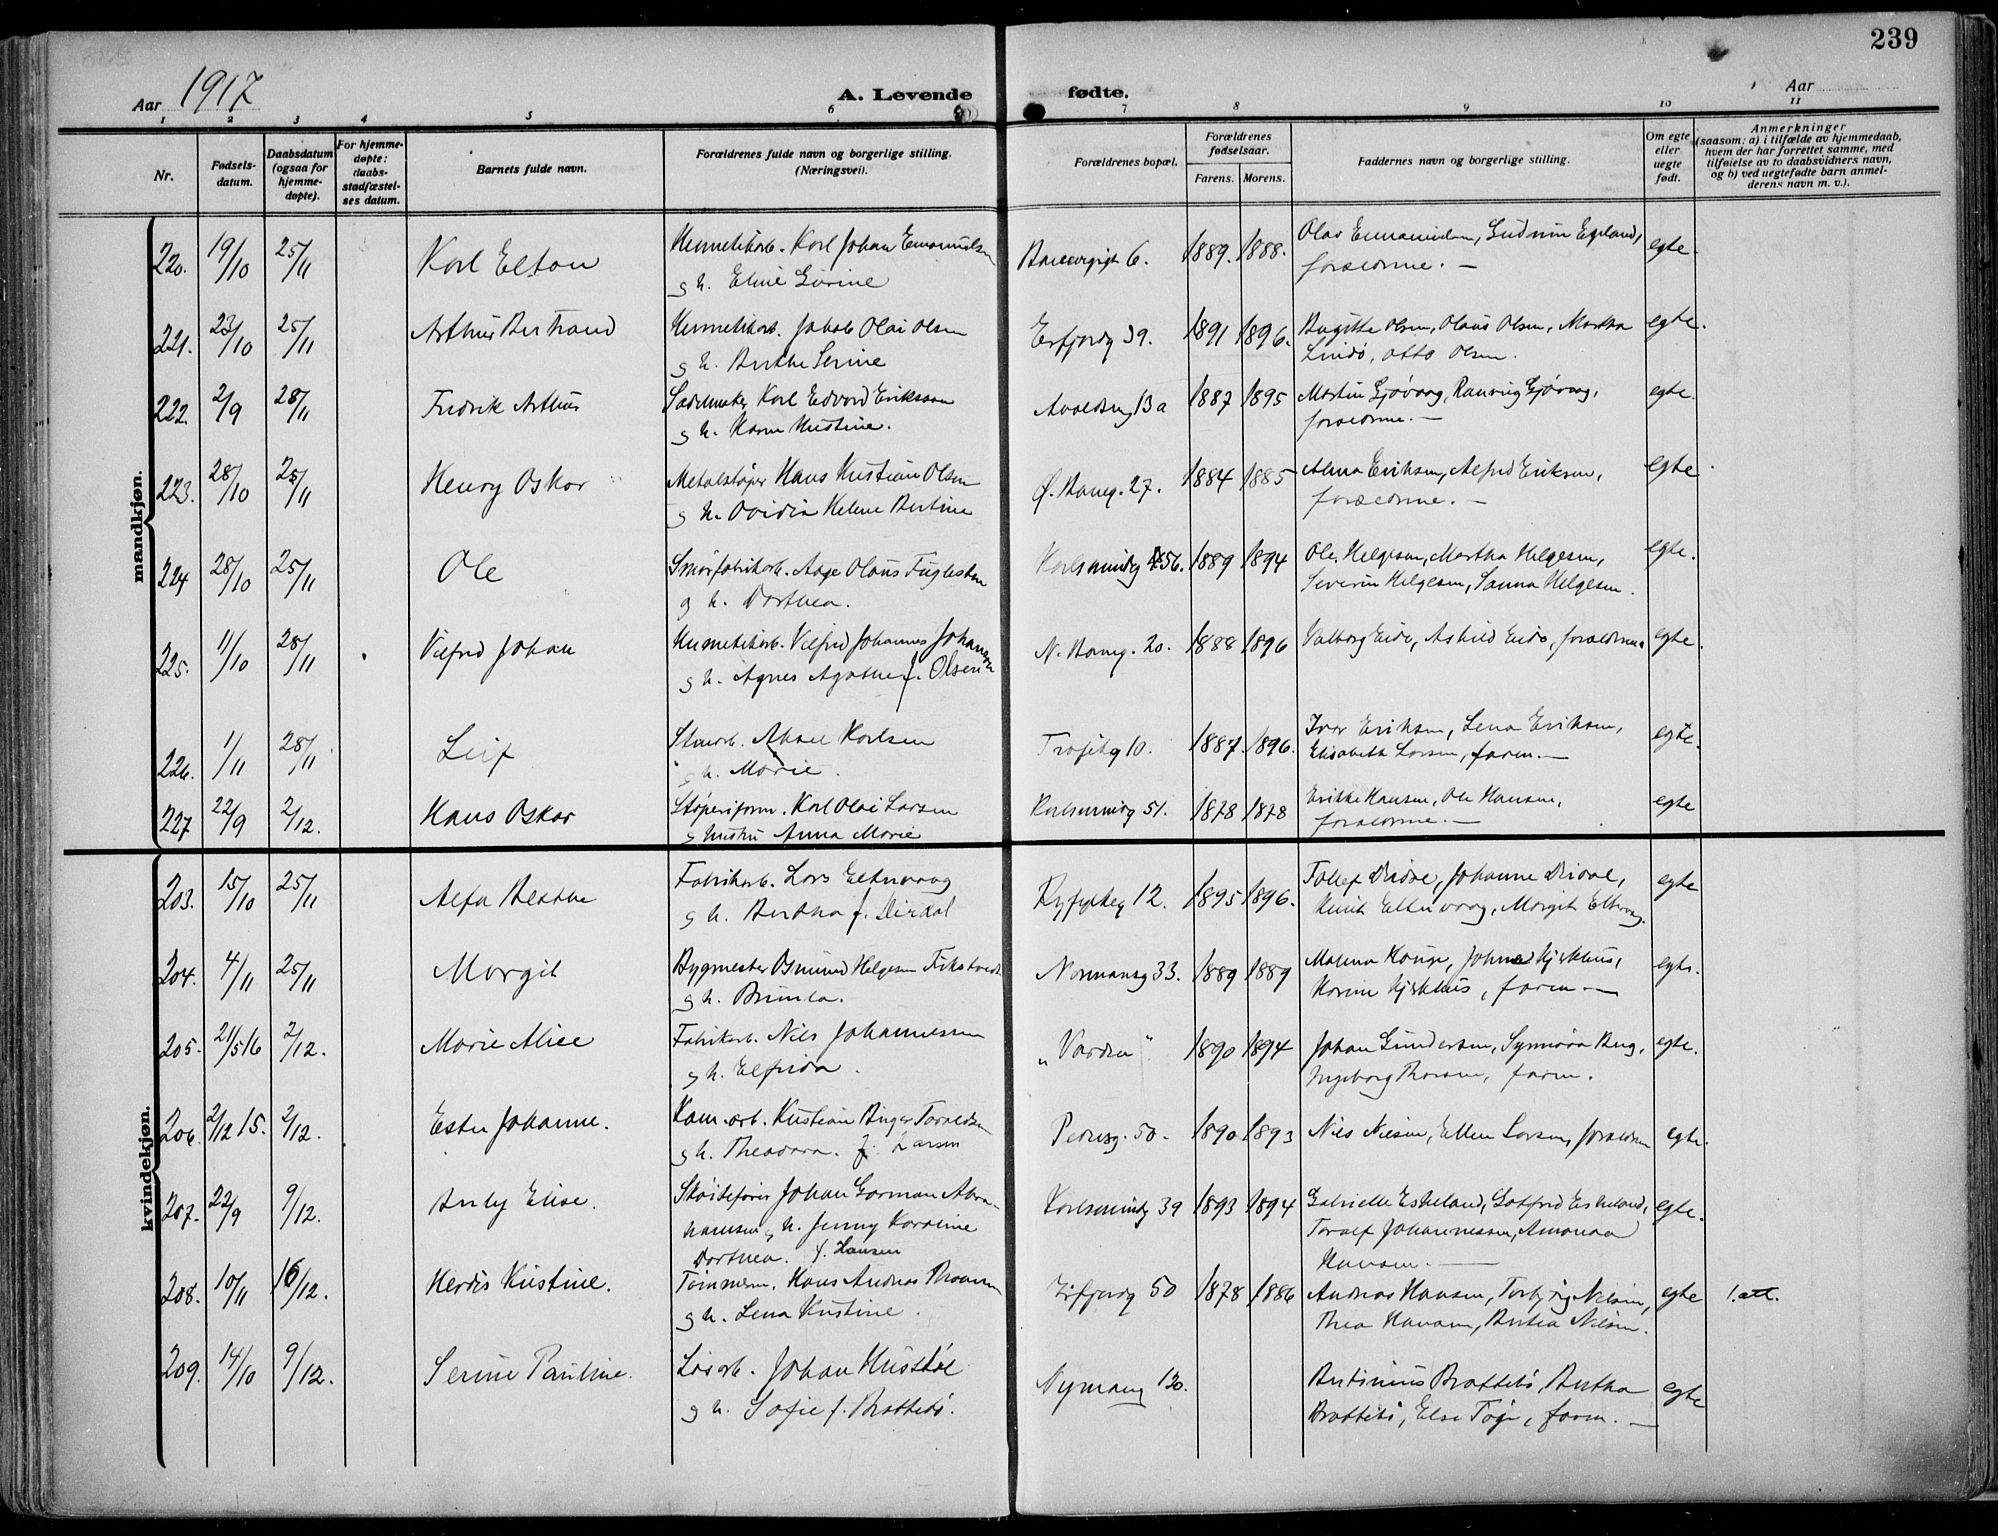 239
Aar 1917
A. Levende fødte.
Aar
1 2 3 4 5 6 7 8 9 10 11
Nr.
Fødsels-
datum.
Daabsdatum
(ogsaa for
hjemme-
døpte).
For hjemme-
døpte:
daabs-
stadfæstel-
ses datum.
Barnets fulde navn.
Forældrenes fulde navn og borgerlige stilling.
(Næringsvei).
Forældrenes bopæl.
Forældrenes
fødselsaar.
Farens. Morens.
Faddernes navn og borgerlige stilling.
Om egte
eller
uegte
født.
Anmerkninger
(saasom: a) i tilfælde av hjemmedaab,
hvem der har forrettet samme, med
tilføielse av to daabsvidners navn,
og b) ved uegtefødte barn anmel-
derens navn m. v.).
mandkjøn.
220. 19/10 25/11 Karl Elton Hermetikarb. Karl Johan Emanuelsen 6. 1889. 1888. Olav Emanuelsen, Gudrun Egeland, egte.
g h. Eline Gurine forældrene. —
221. 23/10 25/11 Arthur Bertrand Hermetikarb. Jakob Olai Olsen Erfjordg 39. 1891 1896. Birgitte Olsen, Olaus Olsen, Martha egte.
g h. Berthe Serine Lindø, Otto Olsen.
222. 2/9 28/11 Fredrik Arthur Sadelmaker Karl Edvard Eriksson Avaldsng 13a 1887 1895 Martin Gjøvaag, Rannveig Gjøvaag, egte.
g h. Karen Kristine. forældrene. —
223. 28/10 25/11 Henry Oskar Metalstøper Hans Kristian Olsen Ø. Baneg. 27. 1884 1885 Alma Eriksen, Alfred Eriksen, egte
g h. Ovidia Helene Bertine forældrene. —
224 28/10 25/11 Ole Smørfabrikarb. Aage Olaus Fuglestein Karlsmindeg 56. 1889 1894 Ole Helgesen, Martha Helgesen, egte.
g h. Dorthea. Severin Helgesen, Sanna Helgesen.
225. 11/10 28/11 Vilfrid Johan Hermetikarb. Vilfrid Johannes Johansen N. Baneg. 20. 1888 1896 Valborg Eide, Astrid Eide, forældrene egte.
g h. Agnes Agathe f. Olsen
226. 1/11 28/11 Leif Stenarb. Aksel Karlsen 10. 1887. 1896. Ivar Eriksen, Lena Eriksen, egte.
g h. Marie. Elisabeth Larsen, faren. —
227 22/9 2/12. Hans Oskar Støperiform. Karl Olai Larsen Karlsmindeg 51. 1878 1878 Hansen, Ole Hansen, egte
g hustru Anna Marie forældrene. —
kvindekjøn.
203. 15/10 25/11 Alfa Berthe Fabrikarb. Lars Eltervaag Ryfylkeg 12. 1895 1896. Tollef Dirdal, Johanne Dirdal, egte
g h. Bertha f. Dirdal Eltervaag, Margit Eltervaag.
204. 4/11 25/11 Margit Bygmester Osmund Helgesen Normansg 33. 1889 1889 Malena Hauge, Kjerkhus, egte.
g h. Karine Kjerkhus, faren —
205. 21/5 16 2/12. Marie Alice Fabrikarb. Nils Johannessen „Varden" 1890 1894 Johan Gundersen, Synnøva Berg, egte.
g h. Elfrida. Ingeborg Thorsen, faren.
206. 2/12 15. 2/12. Ester Johanne. Kom. arb. Kristian Birger Toraldsen Pedersg. 50. 1890 1893 Nils Nilsen, Ellen Larsen, forældrene egte.
g h. Theodora. f. Larsen
207. 22/9 9/12. Elise. Skøitefører Johan Gorman Abra- Karlsmindeg 39 1893 1894 Gabrielle Eskeland, Gotfrid Eskeland, egte.
hamsen g h. Jenny Karoline Toralf Johannessen, Amanda
Dorthea. f. Hansen Hansen. —
208. 10/11 16/12. Herdis Kristine. Tømmerm. Hans Andreas Erfjordg 50 1878 1886 Andreas Hansen, Torbjørg Nilsen, egte 1. att.
g h. Lena Kristine Thea Hansen, Bertea Nilsen.
209. 14/10 9/12. Serine Pauline. Løsarb. Johan Husstøl Nymang 13. Bertinius Brattebø, Bertha egte
g h. Sofie f. Brattebø. Brattebø, Else Tøge, faren. —